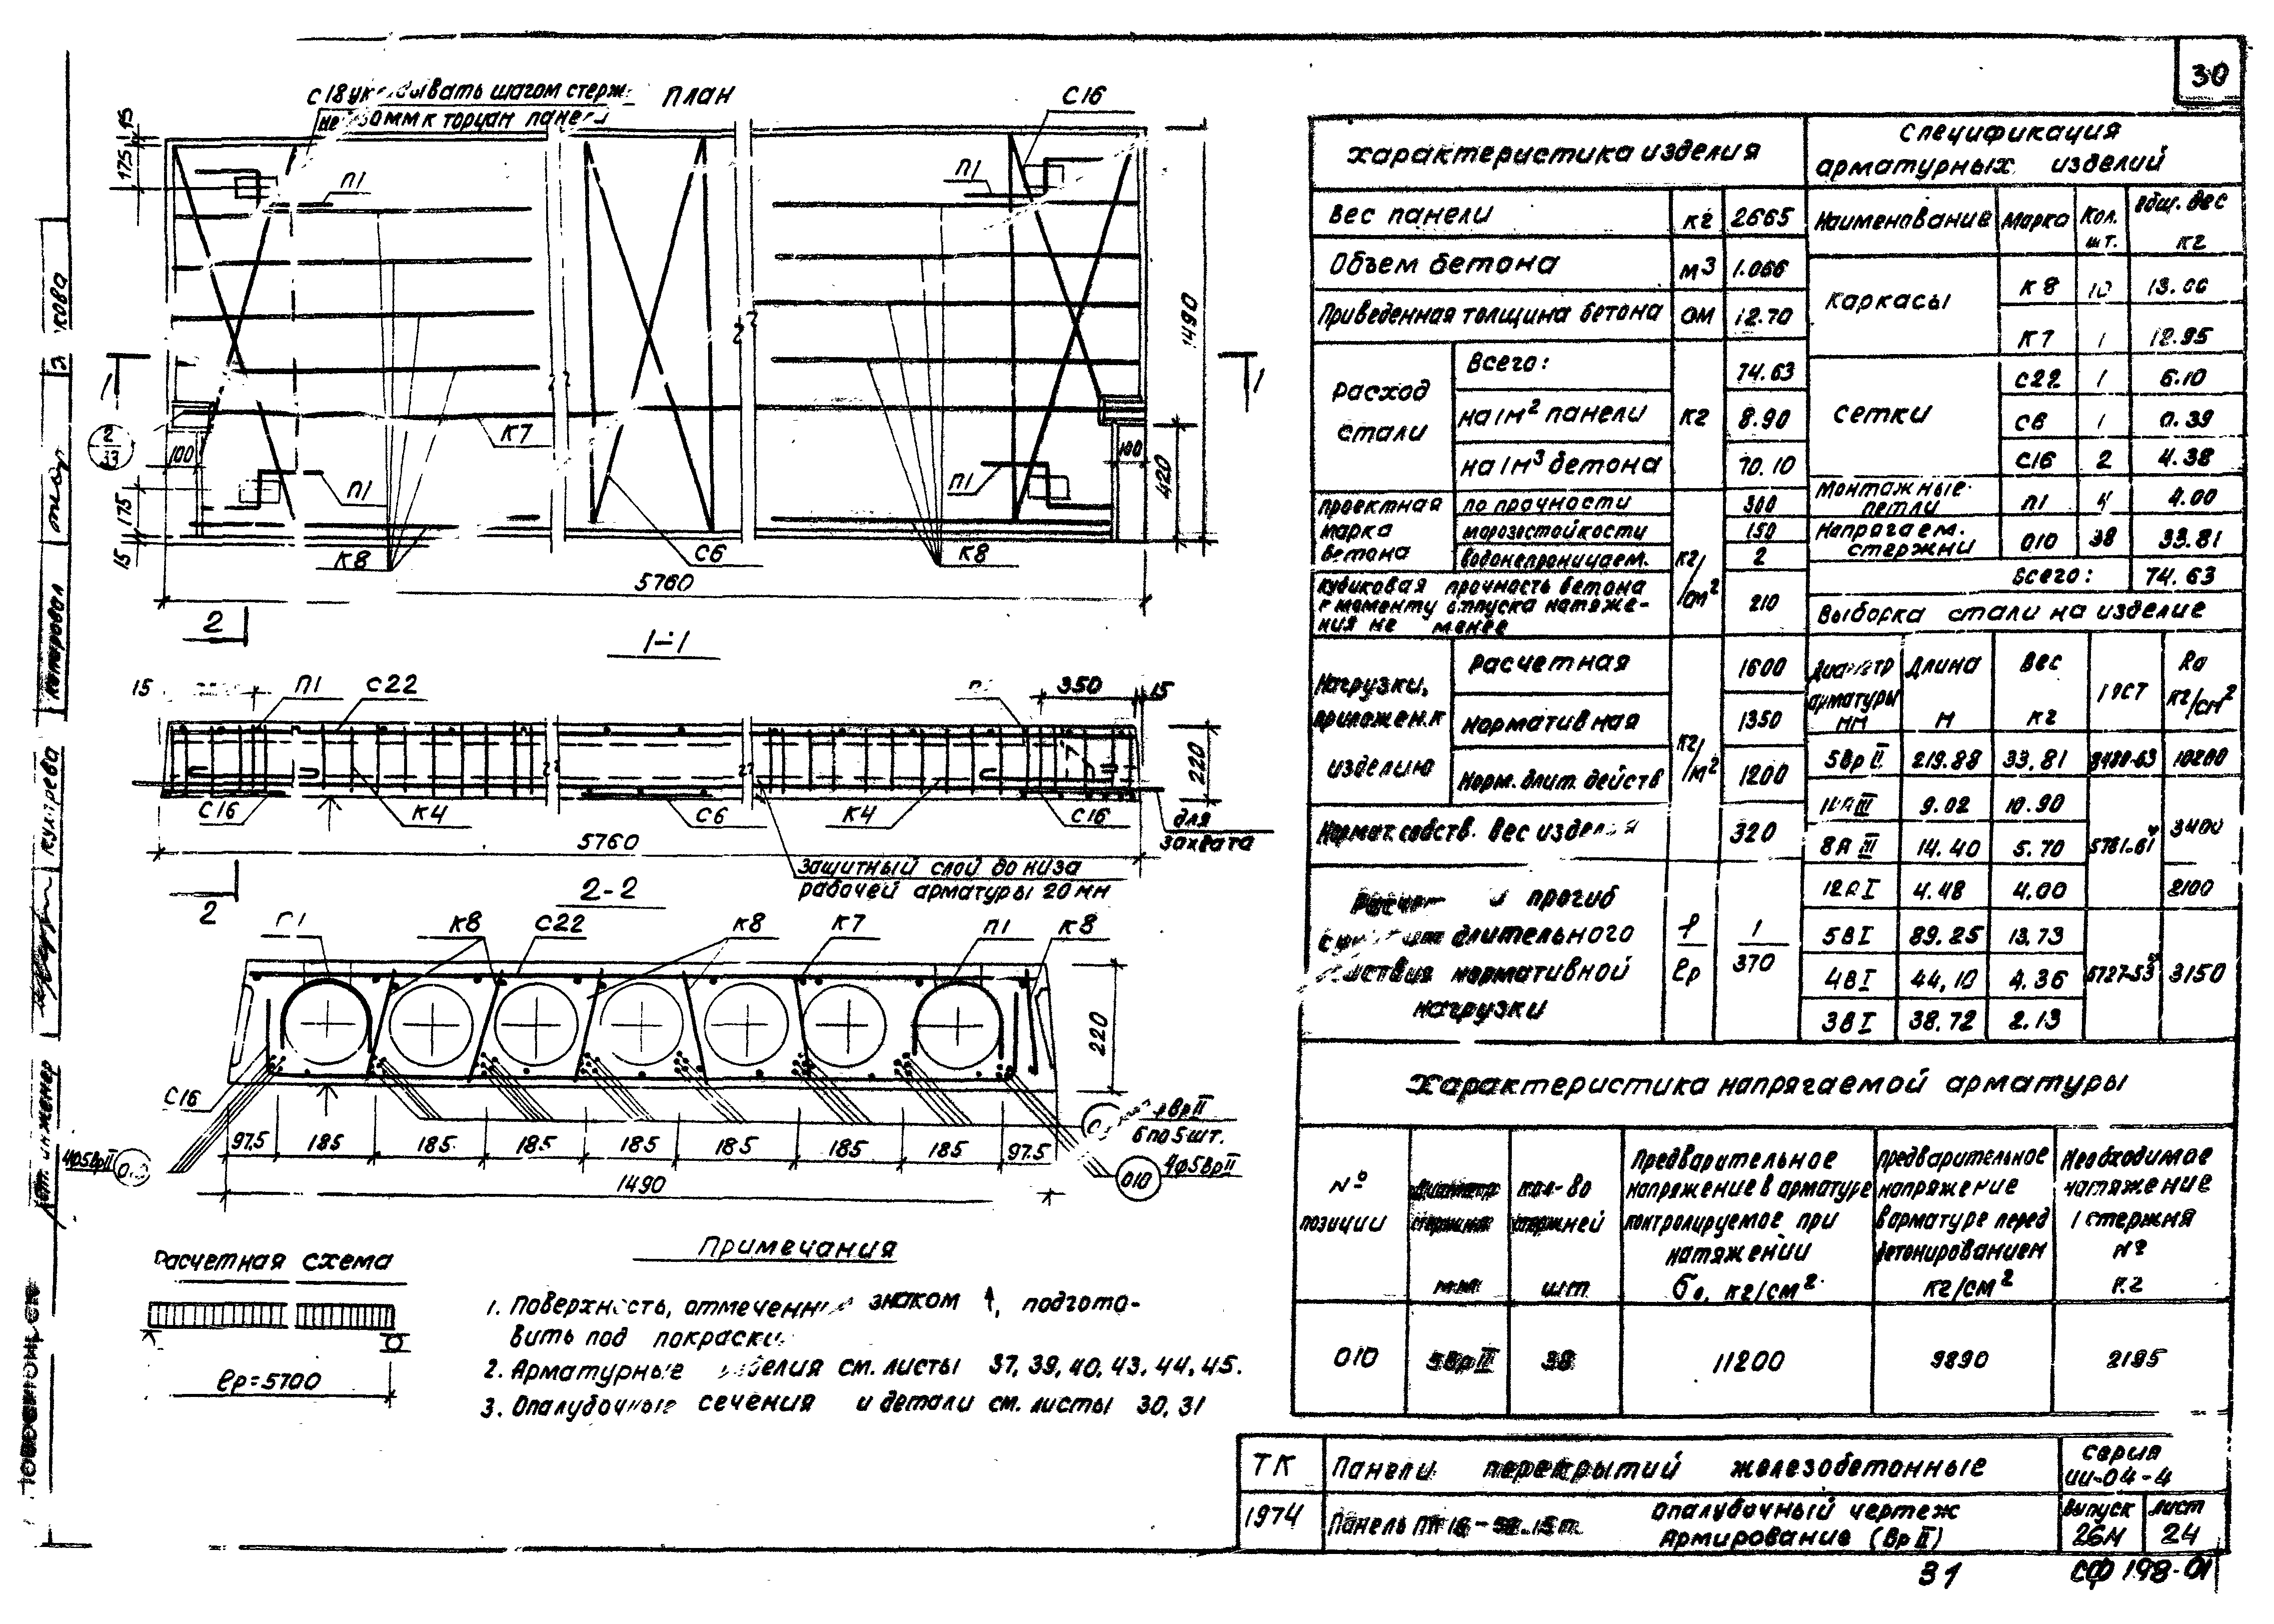 30
План
С16
торцам панели
175
П1
П1
1490
К7
2
33
100
100
420
175
П1
П1
15
К8
С6
К8
5760
2
1
1-1
15
П1
С22
350
15
220
С16
К4
С6
К4
С16
для
захвата
5760
Защитный слой до низа
рабочей арматуры 20 мм
2
2-2
К8
С22
К8
К7
П1
К8
220
С16
6 по 5 шт.
97.5
185
185
185
185
185
185
185
97.5
010
4ф5ВрII
1490
Расчетная схема
ер=5700
Примечания
1. Поверхность, отмеченн знаком ↑, подгото-
вить под покраску
2. Арматурные изделия см. листы 37, 39, 40, 43, 44, 45.
3. Опалубочные сечения и детали см. листы 30, 31
Характеристика изделия
Вес панели кг 2665
Объем бетона м3 1.066
Приведенная толщина бетона см 12.70
Расход стали кг
Всего: 74.63
на 1м2 панели 8.90
на 1м3 бетона 70.10
Проектная марка бетона
по прочности 300
морозостойкости 150
водонепроницаем. 2
кг/см2
Кубиковая прочность бетона
к моменту отпуска натяже-
ния не менее 210
Нагрузки, приложен. к изделию кг/м2
Расчетная 1600
Нормативная 1350
Норм. длит. действ 1200
Нормат. собств. вес изделия 320
прогиб
длительного
действия нормативной
нагрузки
1
370
Спецификация
арматурных изделий
Наименование Марка Кол. шт. Общ. вес кг
Каркасы
К8 10 13.00
К7 1 12.95
Сетки
С22 1 6.10
С6 1 0.39
С16 2 4.38
Монтажные петли П1 4 4.00
Напрягаем. стержни 010 38 33.81
Всего: 74.63
Выборка стали на изделие
Диаметр арматуры мм
Длина м
Вес кг
ГОСТ
Ra кг/см2
5ВрII 219.88 33.81 8480-63 10200
12АIII 9.02 10.90
8АIII 14.40 5.70 5781-61 3400
12АI 4.48 4.00 2100
5ВI 89.25 13.73
4ВI 44,10 4.36 6727-53 3150
3ВI 38.72 2.13
Характеристика напрягаемой арматуры
№ позиции
Диаметр стержня мм
кол-во стержней шт
Предварительное
напряжение в арматуре
контролируемое при
натяжении
σо, кг/см2
Предварительное
напряжение
в арматуре перед
бетонированием
кг/см2
Необходимое
натяжение
1 стержня
№
кг
010 5ВрII 38 11200 9890 2195
ТК Панели перекрытий железобетонные
Серия
ИИ-04-4
1974 Панель
Опалубочный чертеж
Армирование (ВрII)
Выпуск
26М
Лист
24
31
СФ 198-01
Копировал